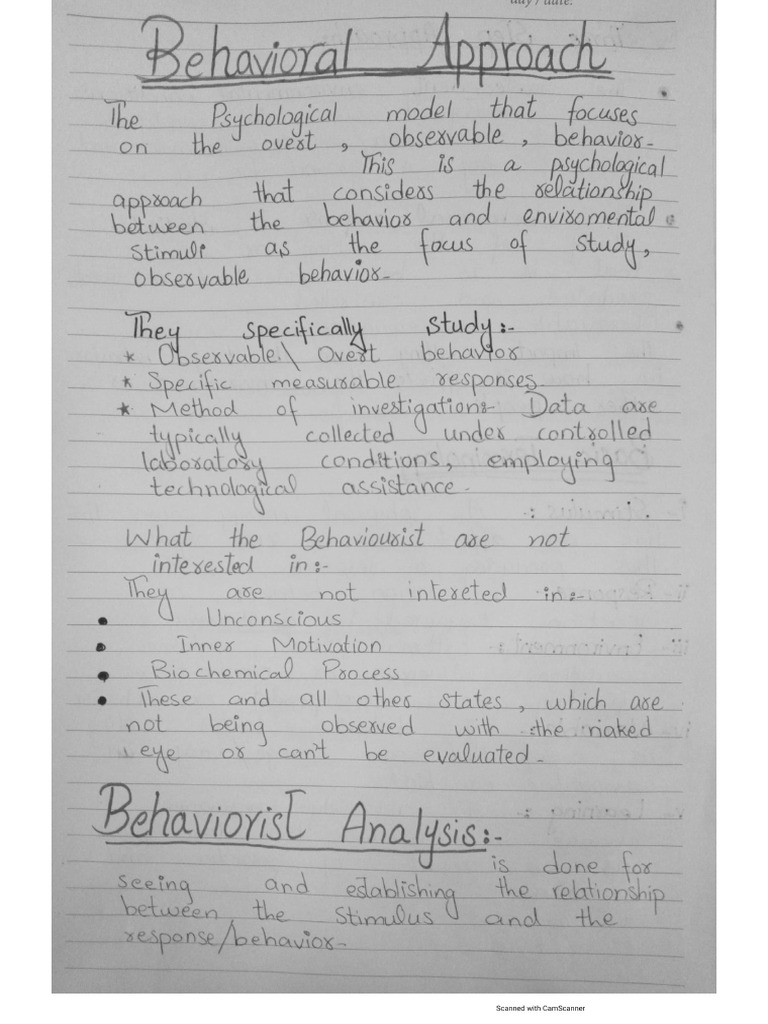 day / date:
Behavioral Approach
The Psychological model that focuses
on the overt, observable, behavior-
This is a psychological
approach that considers the relationship
between the behavior and enviromental
stimuli as the focus of study,
observable behavior-
They specifically study:-
* Observable\ Overt behavior
* Specific measurable responses.
* Method of investigations- Data are
typically collected under controlled
laboratory conditions, employing
technological assistance-
What the Behaviourist are not
interested in:-
They are not intereted in:-
• Unconscious
• Inner Motivation
• Biochemical Process
• These and all other states, which are
not being observed with the naked
eye or can't be evaluated-
Behaviorist Analysis:-
is done for
seeing and establishing the relationship
between the stimulus and the
response/behavior-
Scanned with CamScanner